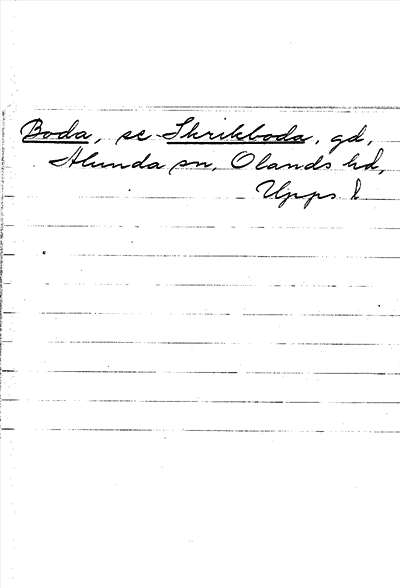 Boda, se Skrikboda, gd,
Alunda sn, Olands hd,
Upps l